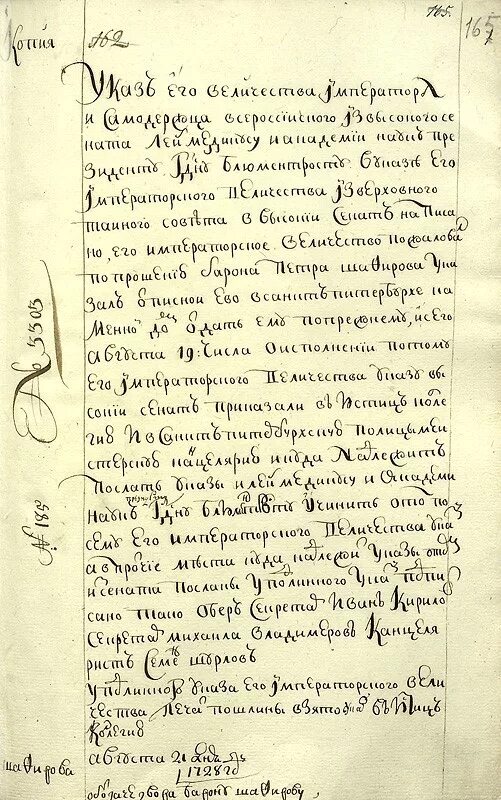 165.
165
Копия
162
Указъ Его величества Императора
и Самодержца всеросиiского Iзвысокого се
ната Леймедикусу и академiи наукъ пре
зиденту Гдну блюментросту. В указе Его
Iмператорского Величества Iзверховного
таиного совѣта в высокiи Сенатъ написа
но, его императорское величество пожаловалъ
по прошенiю барона Петра шафирова ука
залъ описнои Ево в санктъпитербурхе ка
менно дворъ отдать ему попрежнему, и сего
августа 19: числа о исполненiи по тому
Его Iмператорского Величества указу вы
сокiи сенатъ приказали въ Юстицъ коле
гию и в Санктъпитербурхскую полицымеи
стерскую канцелярию и куда надлежитъ
послать указы и леимедикусу и академи
наукъ президенту Гдну блюментросту учинить о том по
сему Его императорского Величества указу
а в протчие мѣста куда надлежитъ указы
и сената посланы у подлинного указа подпи
сано тако Оберъ Секретарь Иванъ Кирило
Секретарь михаила Владимеровъ Канцеля
ристъ Семенъ шурловъ
у подлинного указа Его Iмператорского вели
чества печать пошлины взято въ Юстицъ
Колегию
августа 21 дня
1728 г
о отдаче двора барону шафирову
№ 5303
№ 185
шафирова